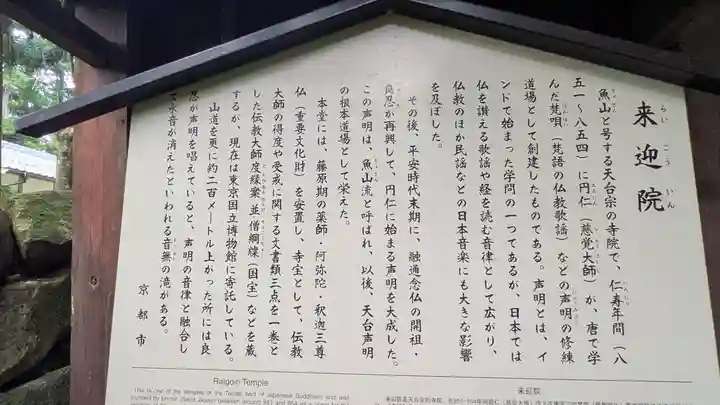 来迎院
らい こう いん
魚山と号する天台宗の寺院で、仁寿年間（八
五一〜八五四）に円仁（慈覚大師）が、唐で学
んだ梵唄（梵語の仏教歌謡）などの声明の修練
道場として創建したものである。声明とは、イ
ンドで始まった学問の一つであるが、日本では
仏を讃える歌謡や経を読む音律として広がり、
仏教のほか民謡などの日本音楽にも大きな影響
を及ぼした。
その後、平安時代末期に、融通念仏の開祖・
良忍が再興して、円仁に始まる声明を大成した。
この声明は、魚山流と呼ばれ、以後、天台声明
の根本道場として栄えた。
本堂には、藤原期の薬師・阿弥陀・釈迦三尊
仏（重要文化財）を安置し、寺宝として、伝教
大師の得度や受戒に関する文書類三点を一巻と
した伝教大師度縁案並僧綱牒（国宝）などを蔵
するが、現在は東京国立博物館に寄託している。
山道を更に約二百メートル上がった所には良
忍が声明を唱えていると、声明の音律と融合し
て水音が消えたといわれる音無の滝がある。
京都市
Raigoin Temple
This is one of the temples of the Tendai sect of Japanese Buddhism and was
来迎院